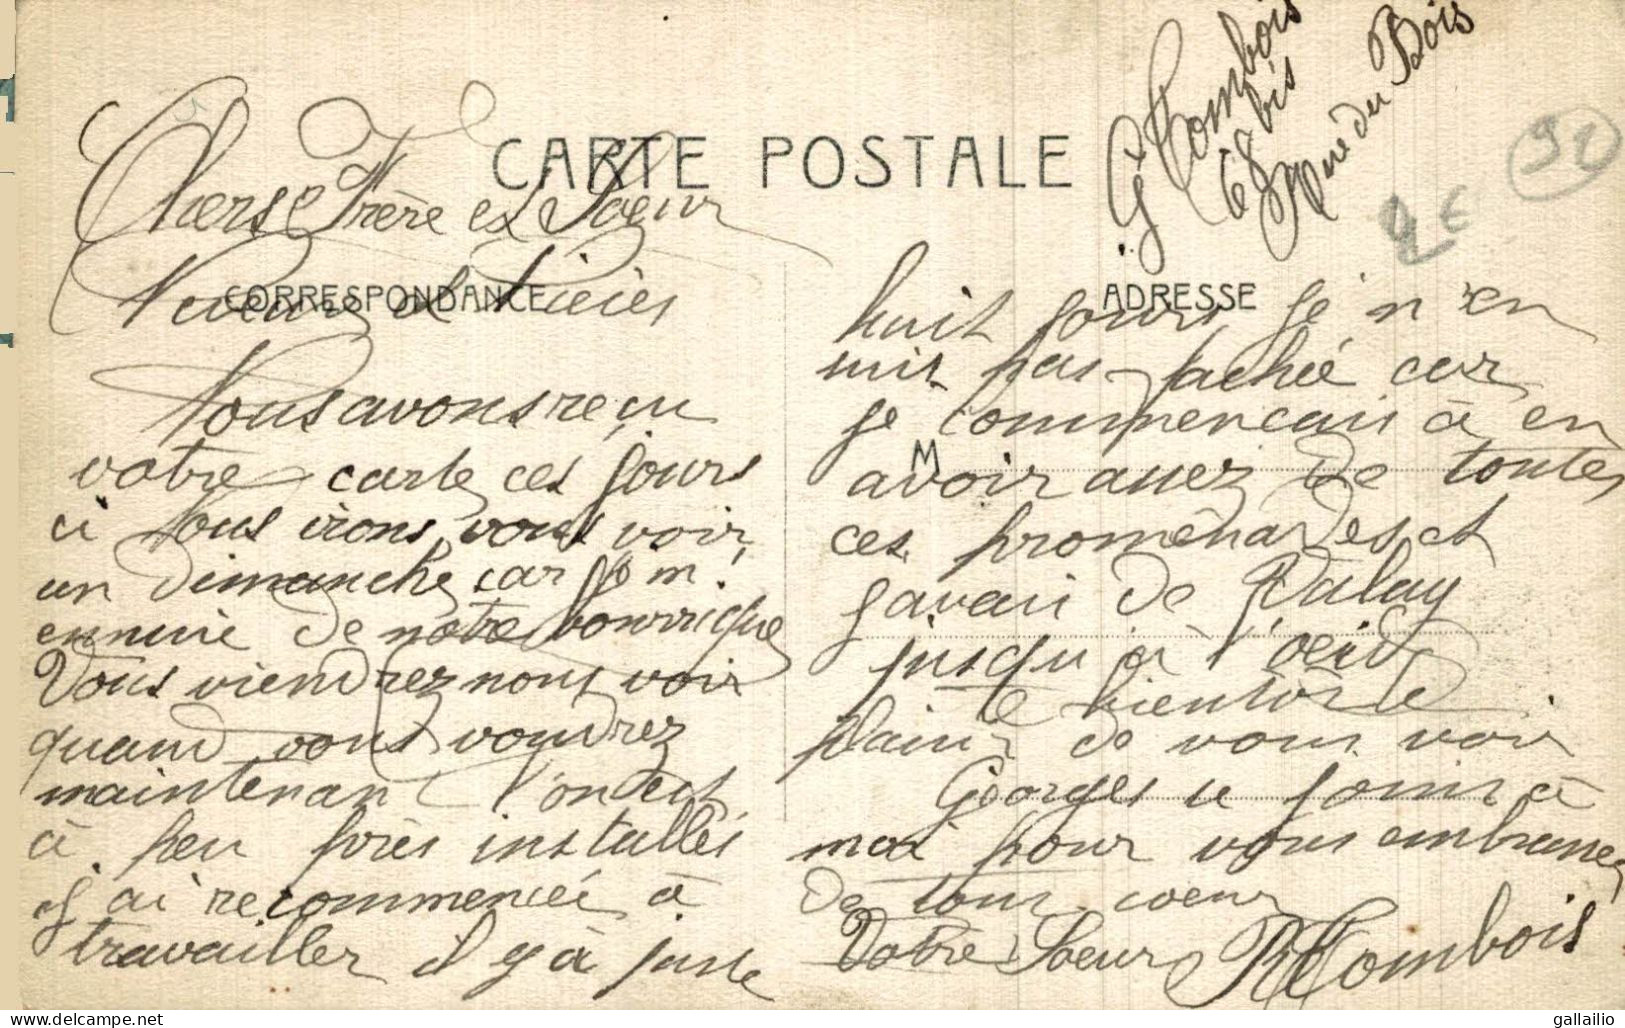 G Hombois
68 bis
Rue du Bois
91
2€
CARTE POSTALE
Chers Frère et Soeur
CORRESPONDANCE
Neveux et Nièces
Nous avons reçu
votre carte ces jours
ci Nous irons vous voir
un Dimanche car
ennuie de notre bourrique
Vous viendrez nous voir
quand vous voudrez
maintenan l'on est
à peu près installés
j'ai recommencée à
travailler il y à juste
ADRESSE
huit jours je n'en
suis pas fachée car
je commencais à en
M
avoir assez De toutes
ces promenades et
j'avais de Palay
jusqu'à l'oeil
à bientôt le
plaisir de vous voir
Georges se joins à
moi pour vous embrasser
De tous coeur
Votre Soeur R Hombois
www.delcampe.net
gallailio